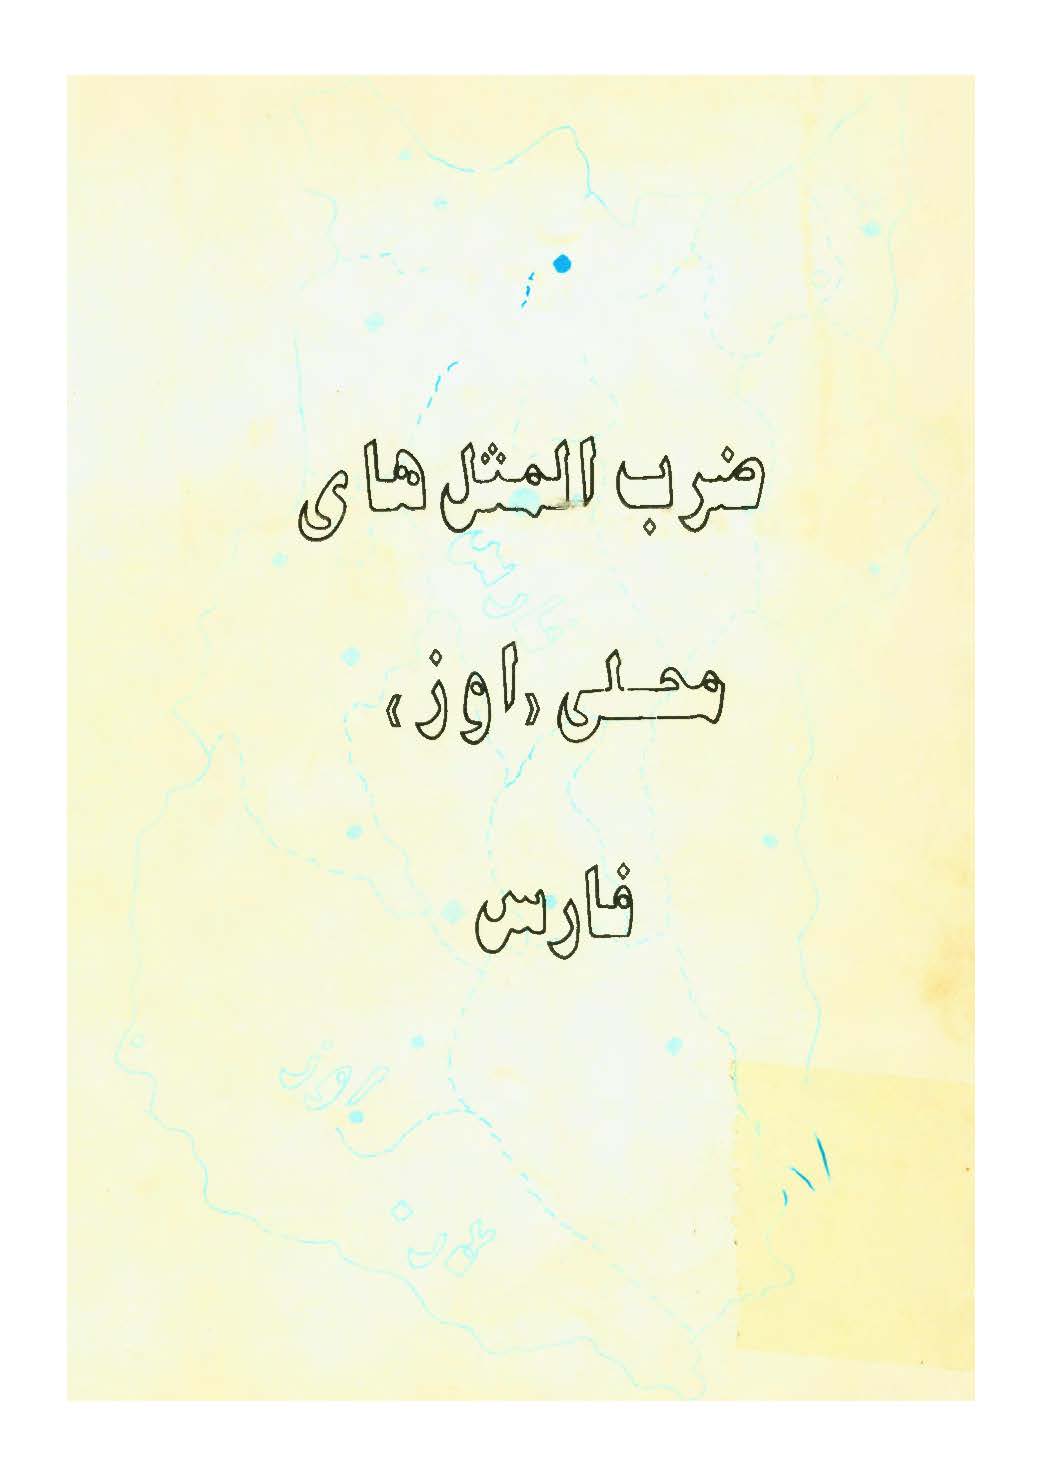 ضرب المثل های
محلی «اوز»
فارس
اوز